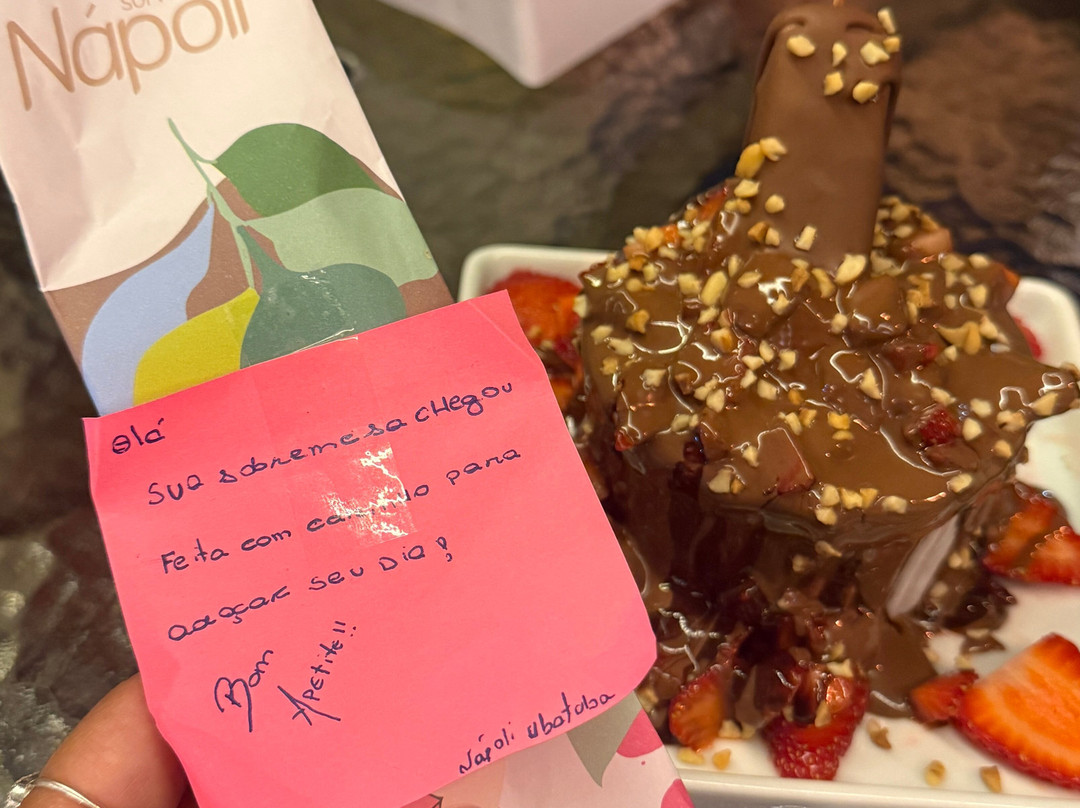 Nápoli
Olá
Sua sobremesa chegou
Feita com carinho para
adoçar seu dia!
Bom
Apetite!!
Nápoli ubatuba